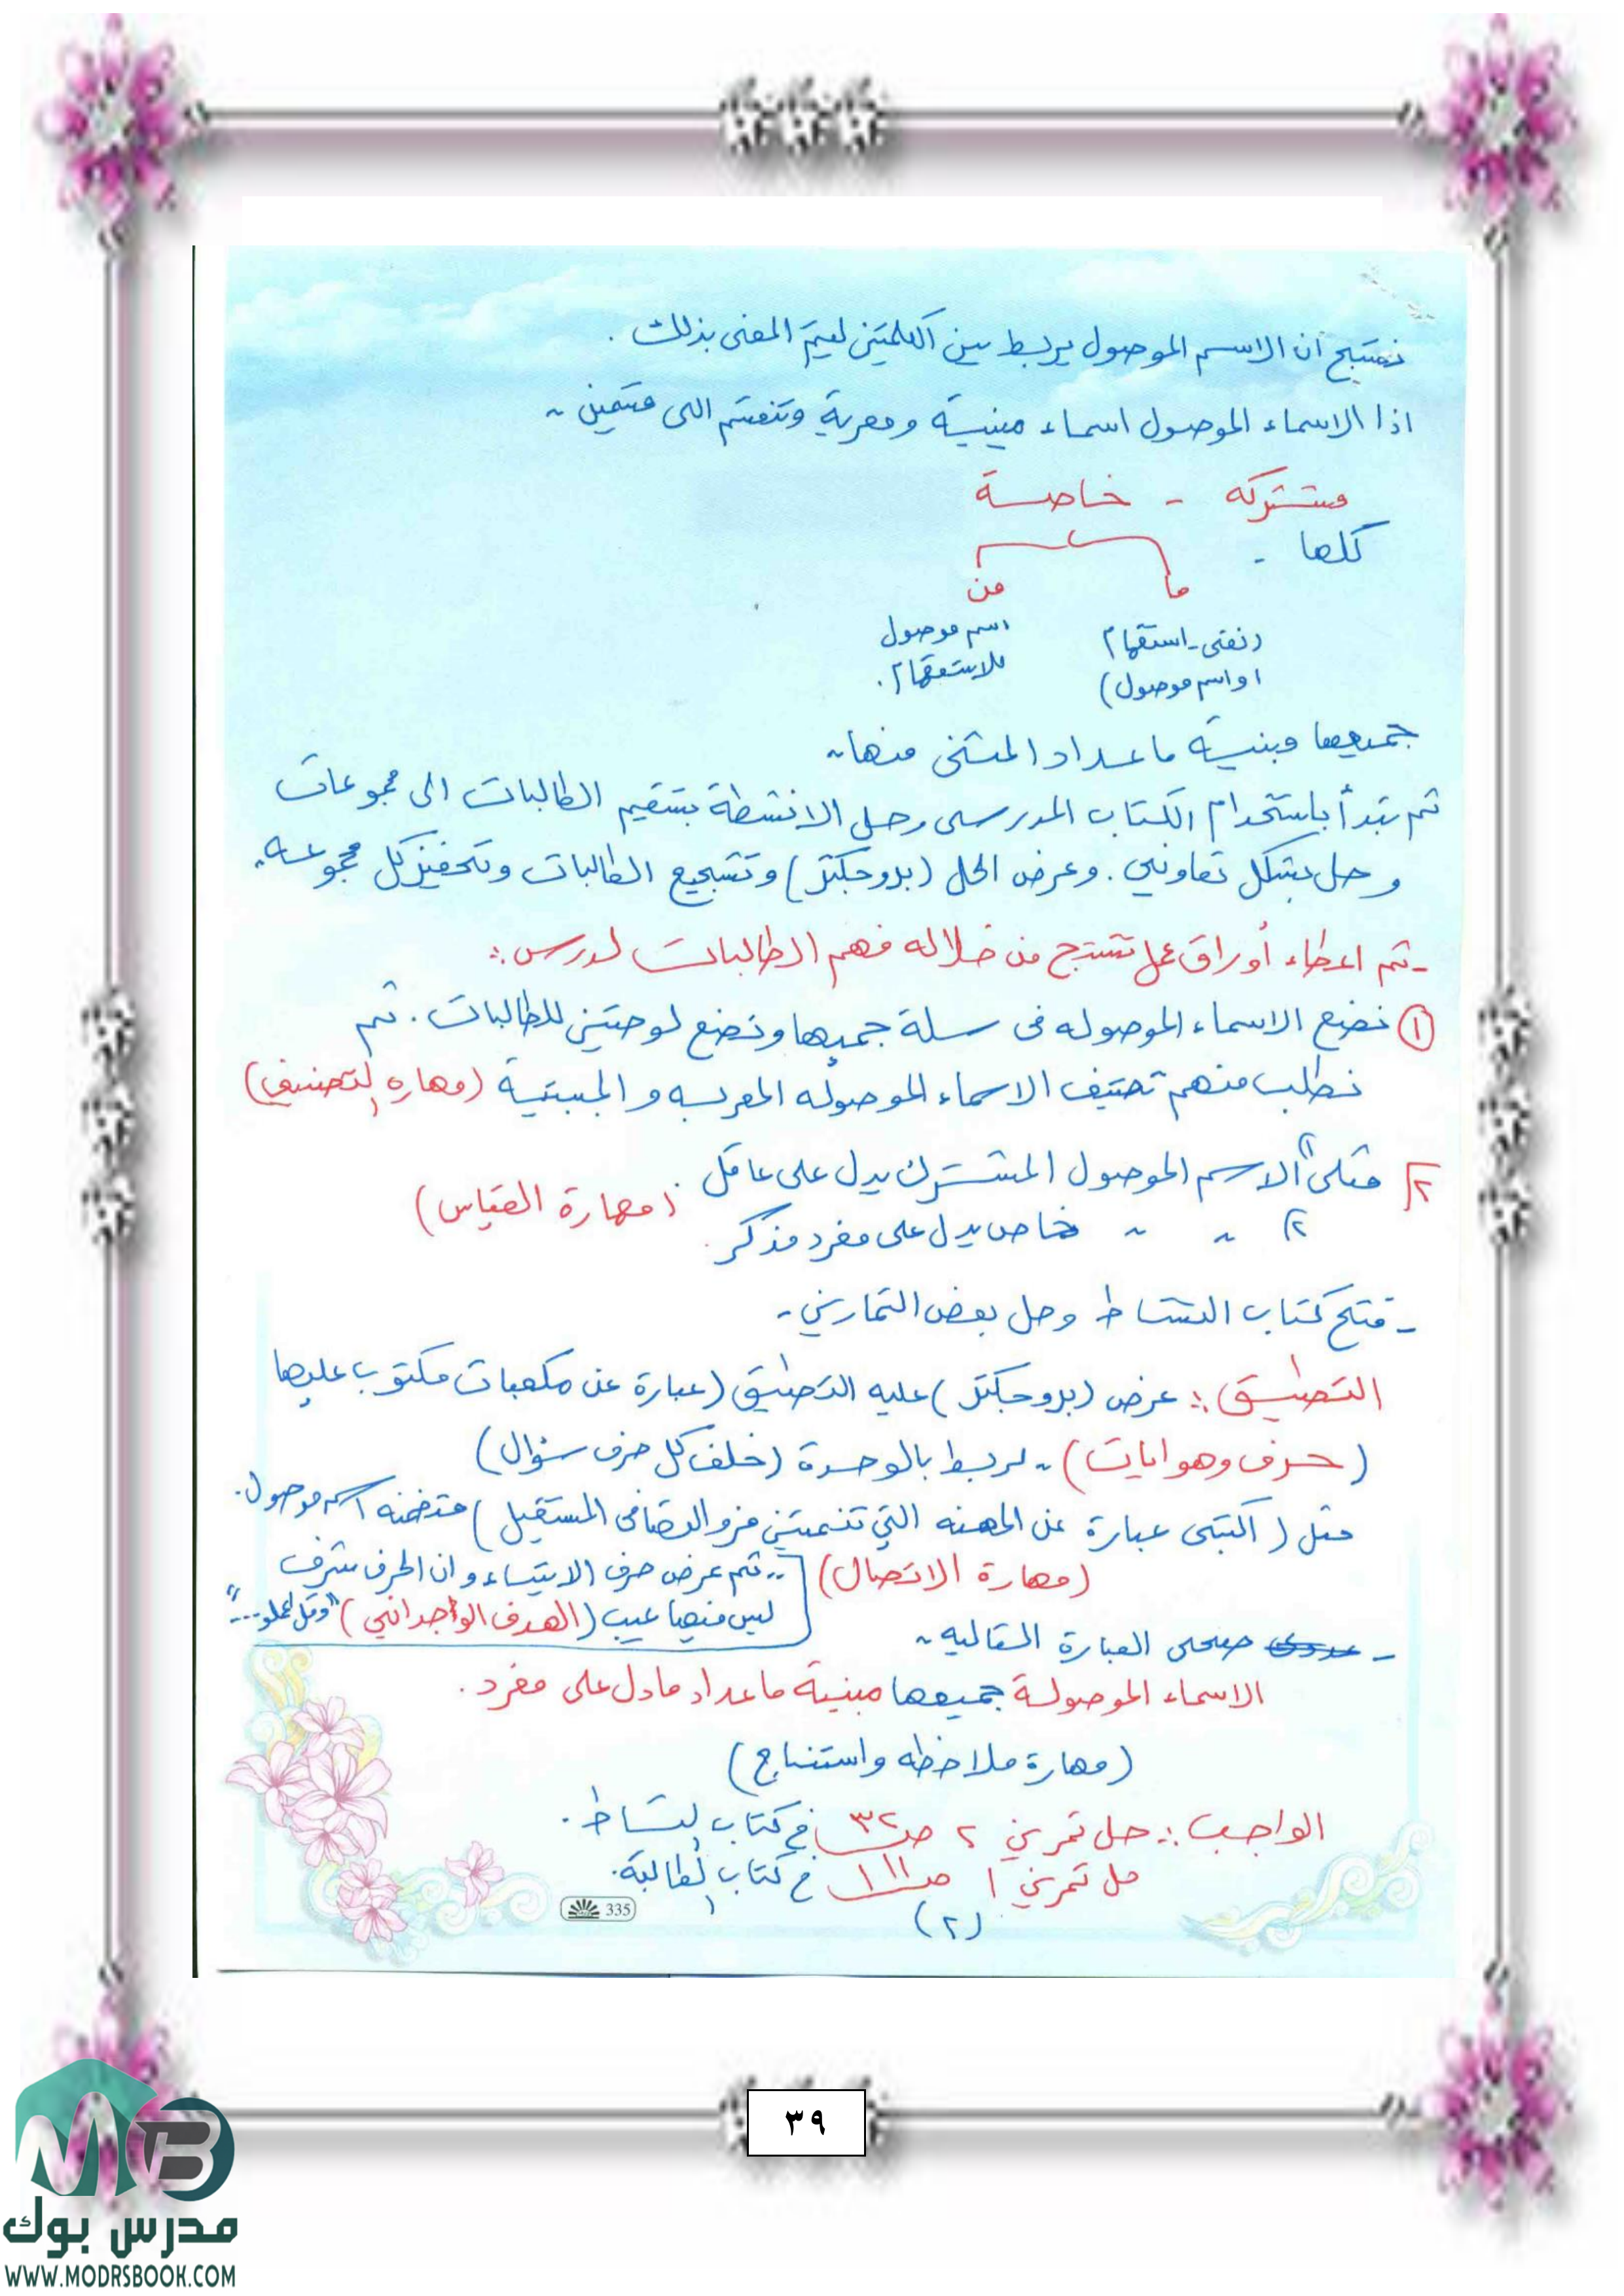 نستنتج أن الاسم الموصول يربط بين الكلمتين ليتم المعنى بذلك .
اذا الاسماء الموصول اسماء مبنية ومعربة وتنقسم الى قسمين ~
مشتركه - خاصة
كلها -
ما من
(نفي - استفهام اسم موصول
او اسم موصول) للاستفهام .
جميعها مبنية ماعدا المثنى منها~
ثم نبدأ باستخدام الكتاب المدرسي وحل الانشطة بتقسيم الطالبات الى مجموعات
وحل بشكل تعاوني . وعرض الحل (بروجكتر) وتشجيع الطالبات وتحفيز كل مجموعه .
- ثم اعطاء أوراق عمل تستنتج من خلاله فهم الطالبات لدرس :
① نضع الاسماء الموصوله فى سلة جميعها ونضع لوحتين للطالبات . ثم
نطلب منهم تصنيف الاسماء الموصوله المعربه والمبنية (مهاره التصنيف)
٢ مثلي ١) الاسم الموصول المشترك يدل على عاقل . (مهارة القياس)
٢) ~ ~ خاص يدل على مفرد مذكر .
- فتح كتاب النشاط وحل بعض التمارين -
التطبيق : عرض (بروجكتر) عليه التطبيق (عبارة عن مكعبات مكتوب عليها
(حرف وهوايات) ~ لربط بالوحدة (خلف كل حرف سؤال)
مثل (اكتبى عبارة عن المهنه التي تتمنين فى المستقبل) متضمنه اسم موصول .
(مهارة الاتصال) .. ثم عرض حرف الانبياء وان الحرف شرف
ليس فيها عيب (الهدف الواجداني) "وقل اعملو..."
- صححى العبارة التاليه ~
الاسماء الموصولة جميعها مبنية ماعدا مادل على مفرد .
(مهارة ملاحظه واستنتاج)
الواجب : حل تمرين ٢ صـ ٣٢ في كتاب النشاط .
حل تمرين ١ صـ ١١١ في كتاب الطالبة .
335
(٢)
٣٩
مدرس بوك
WWW.MODRSBOOK.COM